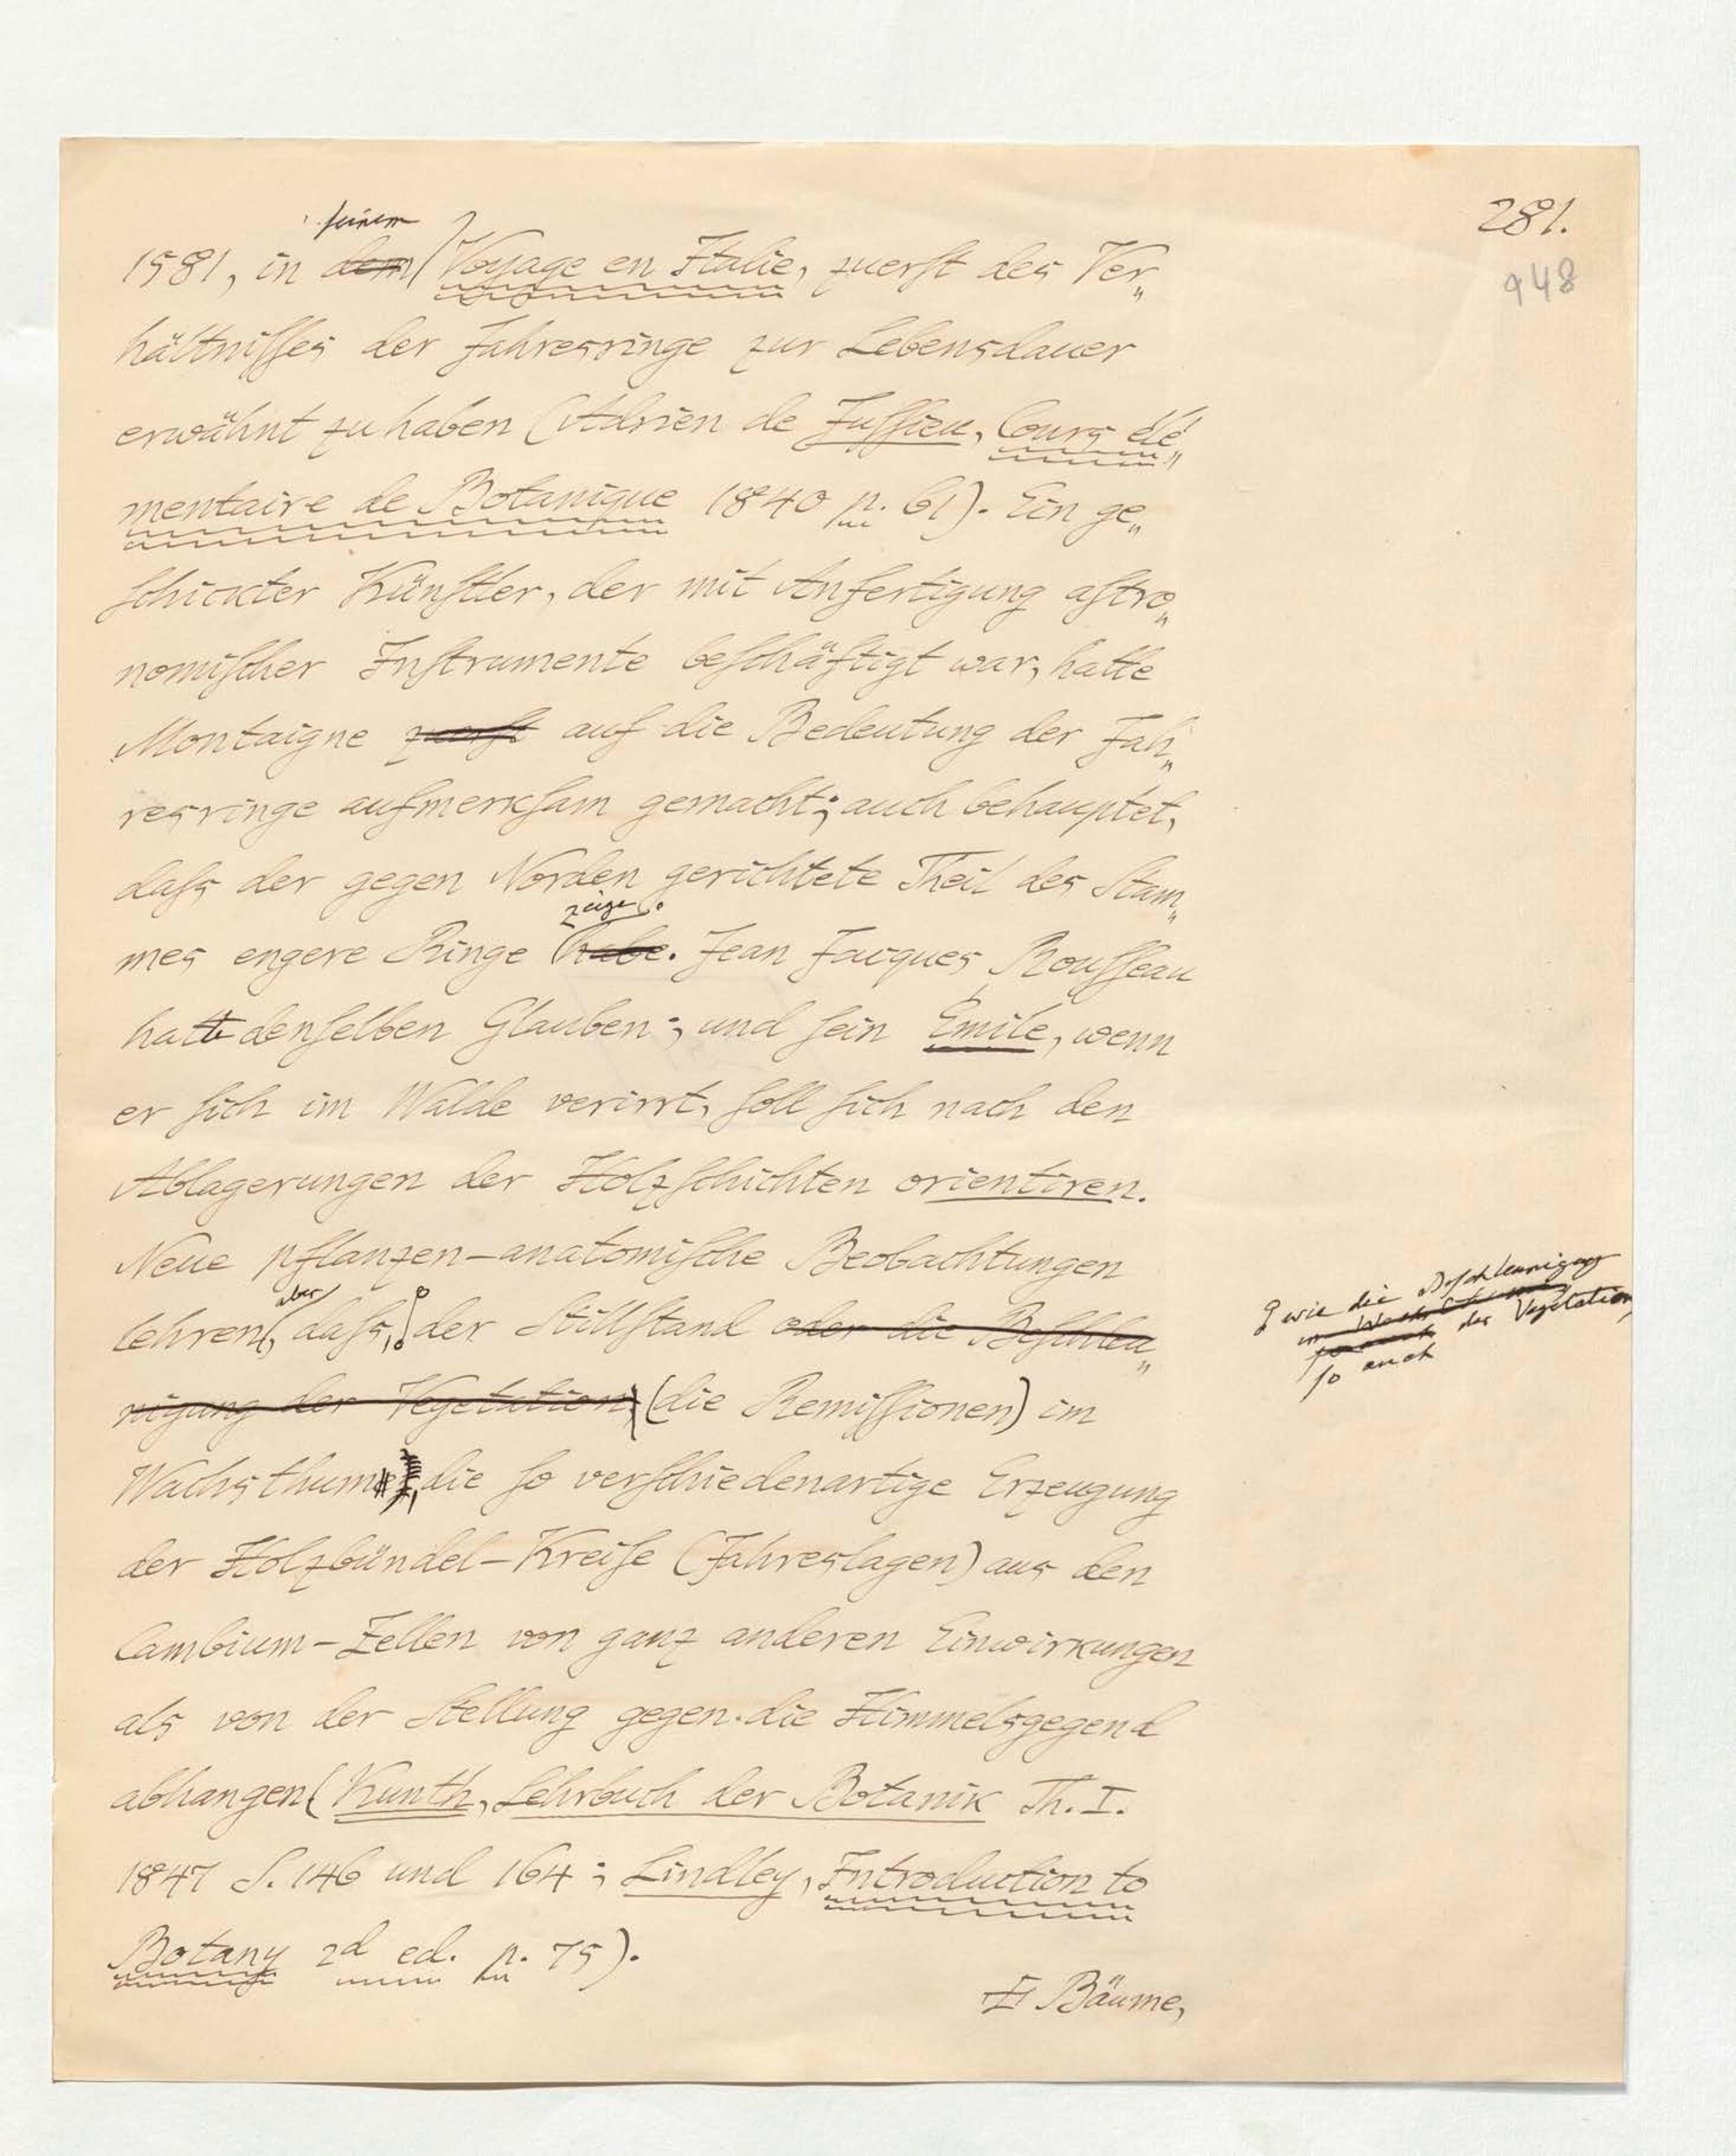 281.
948
seinem
1581, in dem Voyage en Italie, zuerst des Ver„
hältnisses der Jahresringe zur Lebensdauer
erwähnt zu haben (Adrien de Jussieu, Cours élé„
mentaire de Botanique 1840 p. 61). Ein ge„
schickter Künstler, der mit Anfertigung astro„
nomischer Instrumente beschäftigt war, hatte
Montaigne zuerst auf die Bedeutung der Jah„
resringe aufmerksam gemacht; auch behauptet,
dass der gegen Norden gerichtete Theil des Stam„
zeige.
mes engere Ringe habe. Jean Jacques Rousseau
hatte denselben Glauben; und sein Emile, wenn
er sich im Walde verirrt, soll sich nach den
Ablagerungen der Holzschichten orientiren.
Neue pflanzen-anatomische Beobachtungen
aber
lehren, dass, der Stillstand oder die Beschleu„
nigung der Vegetation, (die Remissionen) im
wie die Beschleunigung
der Vegetation,
so auch
Wachsthum, die so verschiedenartige Erzeugung
der Holzbündel-Kreise (Jahreslagen) aus den
Cambium-Zellen von ganz anderen Einwirkungen
als von der Stellung gegen die Himmelsgegend
abhangen (Kunth, Lehrbuch der Botanik Th. I.
1847 S. 146 und 164; Lindley, Introduction to
Botany 2d ed. p. 75).
Bäume,